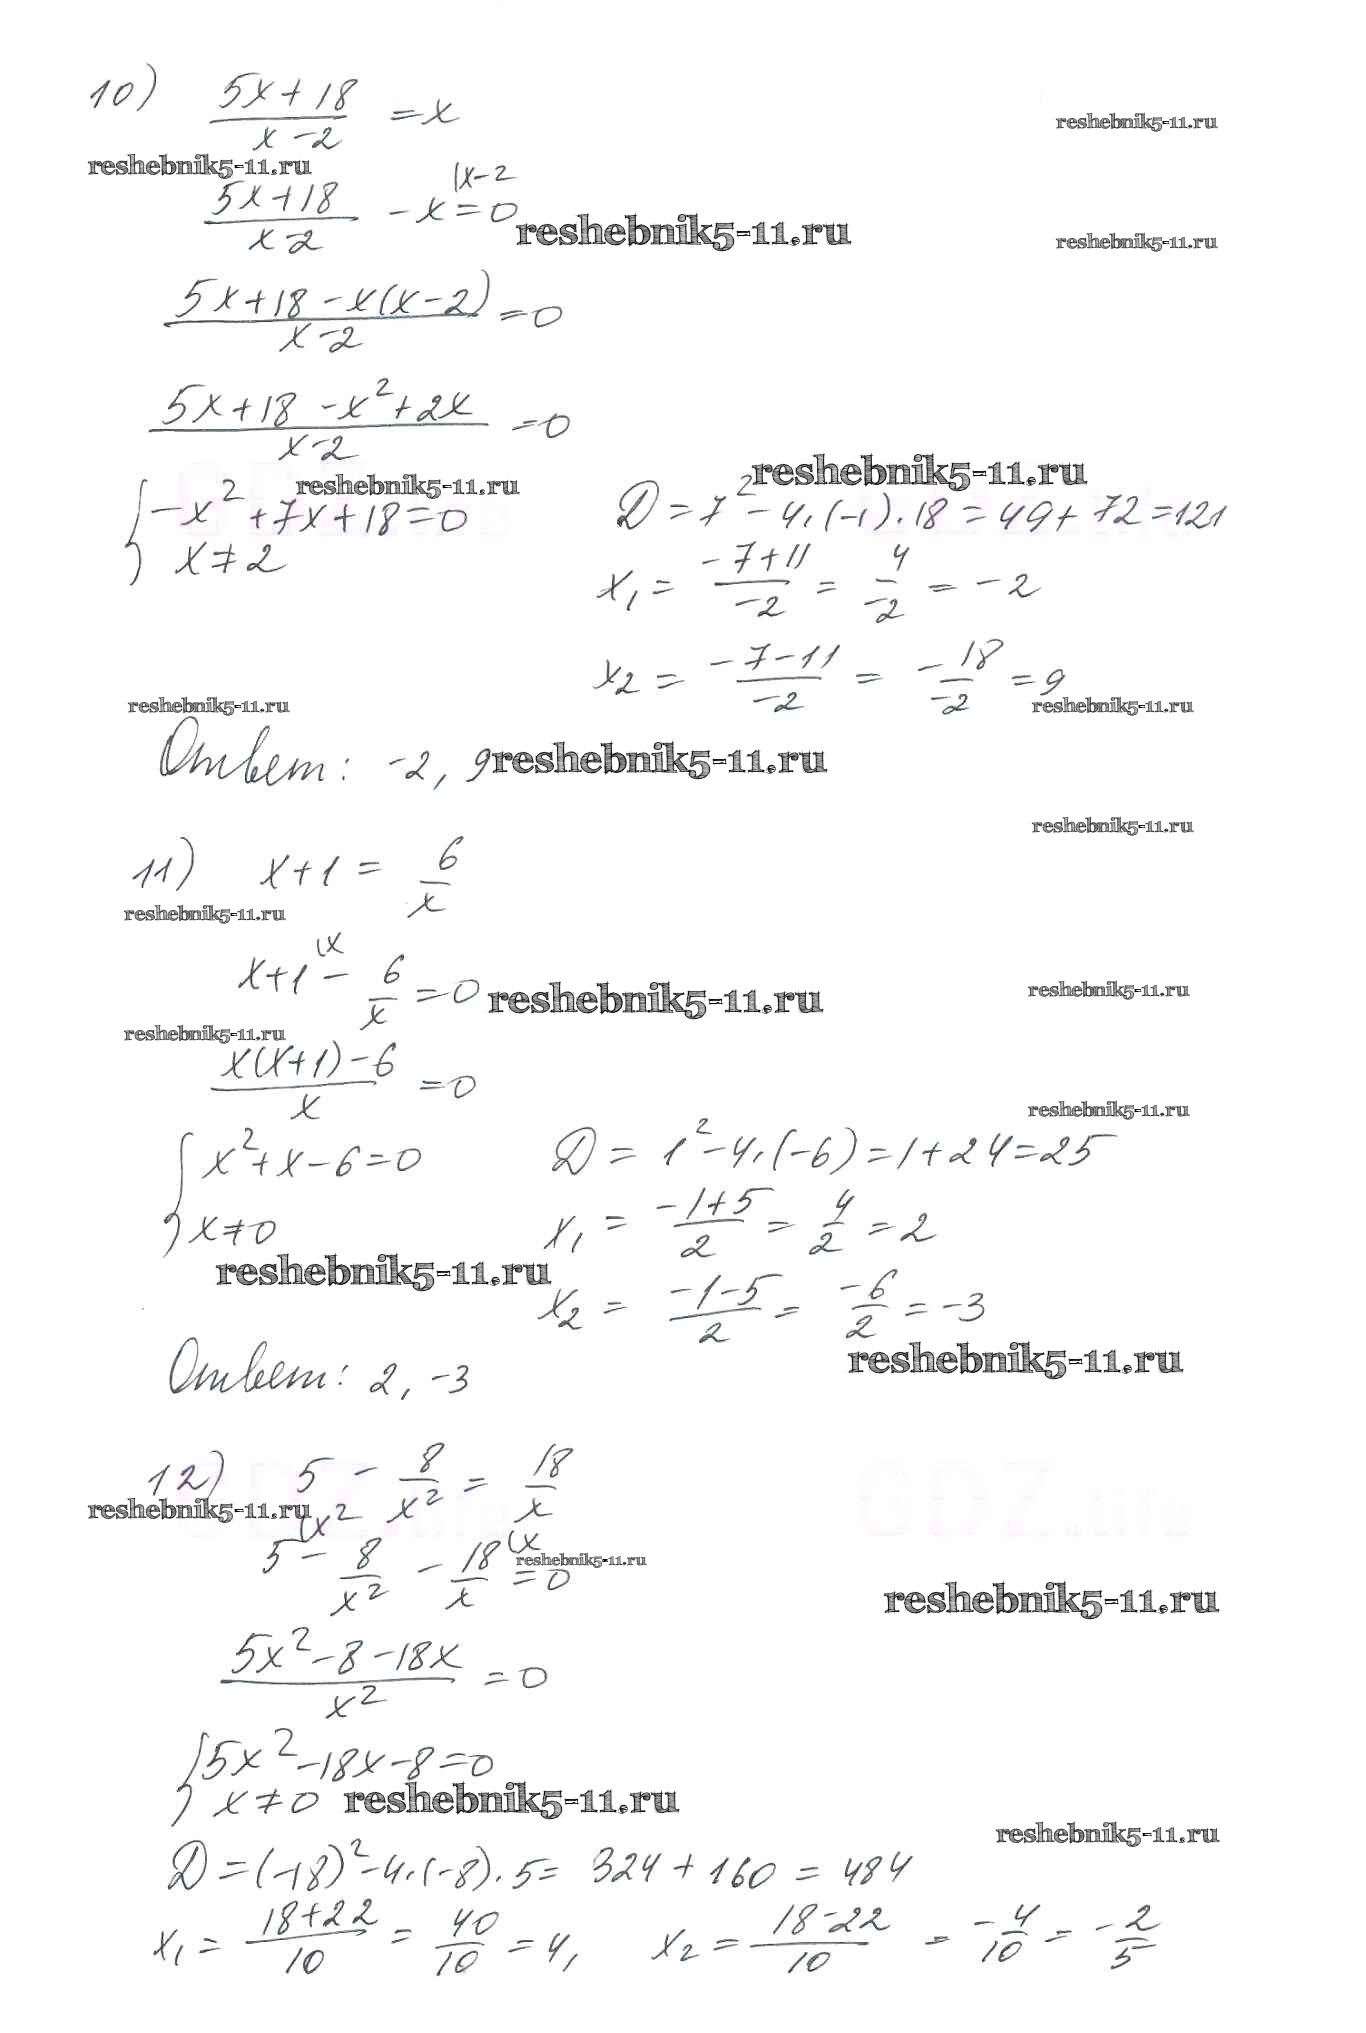 10) (5x+18)/(x-2) = x
reshebnik5-11.ru
reshebnik5-11.ru
(5x+18)/(x-2) - x (x-2 = 0
reshebnik5-11.ru
reshebnik5-11.ru
(5x+18-x(x-2))/(x-2) = 0
(5x+18-x²+2x)/(x-2) = 0
reshebnik5-11.ru
reshebnik5-11.ru
{ -x²+7x+18=0
x≠2
D = 7² - 4·(-1)·18 = 49+72 = 121
x₁ = (-7+11)/(-2) = 4/(-2) = -2
x₂ = (-7-11)/(-2) = (-18)/(-2) = 9
reshebnik5-11.ru
reshebnik5-11.ru
Ответ: -2, 9
reshebnik5-11.ru
reshebnik5-11.ru
11) x+1 = 6/x
reshebnik5-11.ru
x+1 (x - 6/x = 0
reshebnik5-11.ru
reshebnik5-11.ru
reshebnik5-11.ru
(x(x+1)-6)/x = 0
reshebnik5-11.ru
{ x²+x-6=0
x≠0
D = 1² - 4·(-6) = 1+24 = 25
x₁ = (-1+5)/2 = 4/2 = 2
reshebnik5-11.ru
x₂ = (-1-5)/2 = -6/2 = -3
reshebnik5-11.ru
Ответ: 2, -3
12) 5 - 8/x² = 18/x
reshebnik5-11.ru
GDZ.life
GDZ.life
5 (x² - 8/x² - 18/x (x = 0
reshebnik5-11.ru
reshebnik5-11.ru
(5x²-8-18x)/x² = 0
{ 5x²-18x-8=0
x≠0
reshebnik5-11.ru
reshebnik5-11.ru
D = (-18)² - 4·(-8)·5 = 324+160 = 484
x₁ = (18+22)/10 = 40/10 = 4, x₂ = (18-22)/10 = -4/10 = -2/5